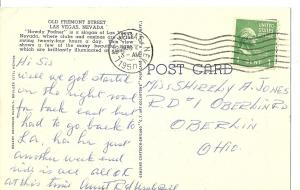 OLD FREMONT STREET
LAS VEGAS, NEVADA
"Howdy Podner" is a slogan of Las Vegas,
Nevada, where clubs and casinos are
twenty-four hours a day. This view
shows a few of the many beautiful
which are brilliantly illuminated
NEVADA
1950
AM
1 CENT 1
POST CARD
Hi Sis
Well we got started
on the right road
for back east but
had to go back to
La, ha ha just
another week end
is are all OK
at this time Aunt
Miss Shirley A. Jones
R D #1 Oberlin Rd
OBERLIN
Ohio.